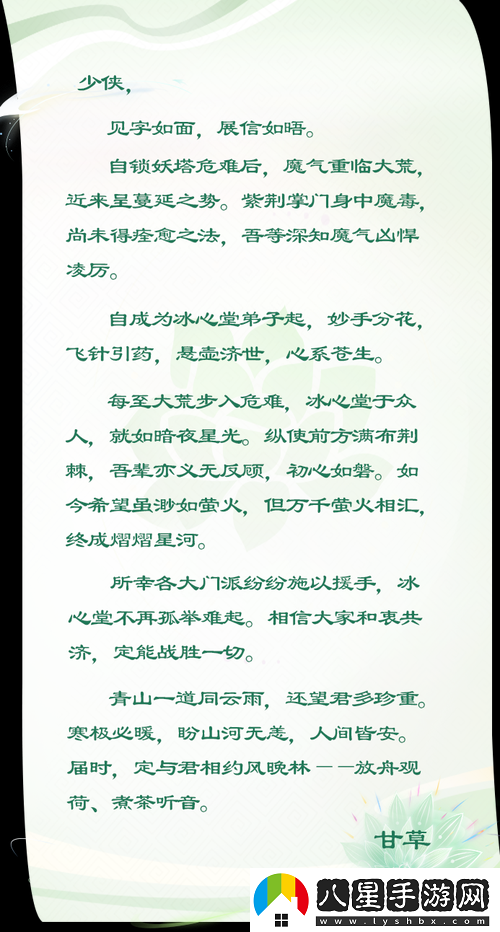 少侠，
见字如面，展信如晤。
自锁妖塔危难后，魔气重临大荒，
近来呈蔓延之势。紫荆掌门身中魔毒，
尚未得痊愈之法，吾等深知魔气凶悍
凌厉。
自成为冰心堂弟子起，妙手分花，
飞针引药，悬壶济世，心系苍生。
每至大荒步入危难，冰心堂于众
人，就如暗夜星光。纵使前方满布荆
棘，吾辈亦义无反顾，初心如磐。如
今希望虽渺如萤火，但万千萤火相汇，
终成熠熠星河。
所幸各大门派纷纷施以援手，冰
心堂不再孤举难起。相信大家和衷共
济，定能战胜一切。
青山一道同云雨，还望君多珍重。
寒极必暖，盼山河无恙，人间皆安。
届时，定与君相约风晚林——放舟观
荷、煮茶听音。
甘草
八星手游网
www.lyshbx.com